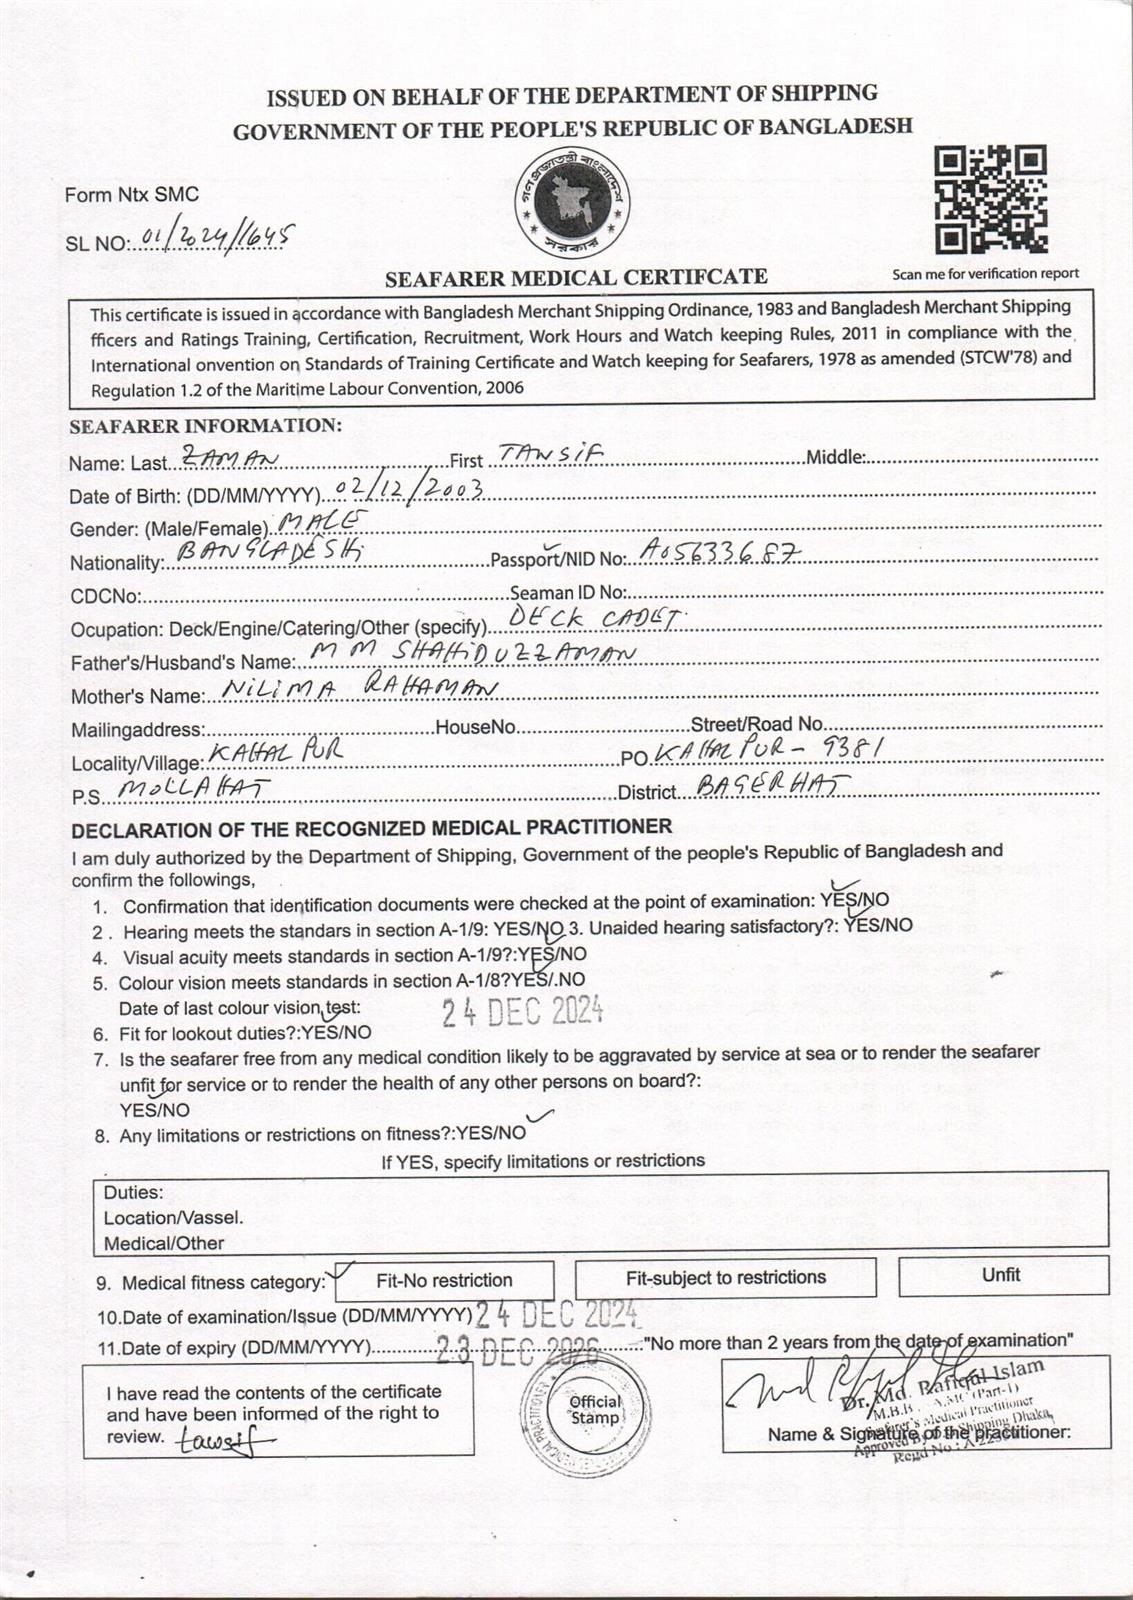 ISSUED ON BEHALF OF THE DEPARTMENT OF SHIPPING
GOVERNMENT OF THE PEOPLE'S REPUBLIC OF BANGLADESH
গণপ্রজাতন্ত্রী বাংলাদেশ
সরকার
Form Ntx SMC
SL NO: 01/2024/1645
Scan me for verification report
SEAFARER MEDICAL CERTIFCATE
This certificate is issued in accordance with Bangladesh Merchant Shipping Ordinance, 1983 and Bangladesh Merchant Shipping
fficers and Ratings Training, Certification, Recruitment, Work Hours and Watch keeping Rules, 2011 in compliance with the
International onvention on Standards of Training Certificate and Watch keeping for Seafarers, 1978 as amended (STCW'78) and
Regulation 1.2 of the Maritime Labour Convention, 2006
SEAFARER INFORMATION:
Name: Last ZAMAN First TAWSIF Middle:
Date of Birth: (DD/MM/YYYY) 02/12/2003
Gender: (Male/Female) MALE
Nationality: BANGLADESHi Passport/NID No: A05633687
CDCNo: Seaman ID No:
Ocupation: Deck/Engine/Catering/Other (specify) DECK CADET
Father's/Husband's Name: M M SHAHiDUZZAMAN
Mother's Name: NiLiMA RAHAMAN
Mailingaddress: HouseNo Street/Road No
Locality/Village: KAHALPUR PO KAHALPUR - 9381
P.S. MOLLAHAT District BAGERHAT
DECLARATION OF THE RECOGNIZED MEDICAL PRACTITIONER
I am duly authorized by the Department of Shipping, Government of the people's Republic of Bangladesh and
confirm the followings,
1. Confirmation that identification documents were checked at the point of examination: YES/NO
2 . Hearing meets the standars in section A-1/9: YES/NO 3. Unaided hearing satisfactory?: YES/NO
4. Visual acuity meets standards in section A-1/9?:YES/NO
5. Colour vision meets standards in section A-1/8?YES/.NO
Date of last colour vision test: 24 DEC 2024
6. Fit for lookout duties?:YES/NO
7. Is the seafarer free from any medical condition likely to be aggravated by service at sea or to render the seafarer
unfit for service or to render the health of any other persons on board?:
YES/NO
8. Any limitations or restrictions on fitness?:YES/NO
If YES, specify limitations or restrictions
Duties:
Location/Vassel.
Medical/Other
9. Medical fitness category: Fit-No restriction Fit-subject to restrictions Unfit
10.Date of examination/Issue (DD/MM/YYYY) 24 DEC 2024
11.Date of expiry (DD/MM/YYYY) 23 DEC 2026 "No more than 2 years from the date of examination"
I have read the contents of the certificate
and have been informed of the right to
review. tawsif
Official
Stamp
Dr. Md. Rafiqul Islam
M.B.B. A.MC (Part-1)
Seafarer's Medical Practitioner
Approved By Shipping Dhaka,
Regd No :
Name & Signature of the practitioner: